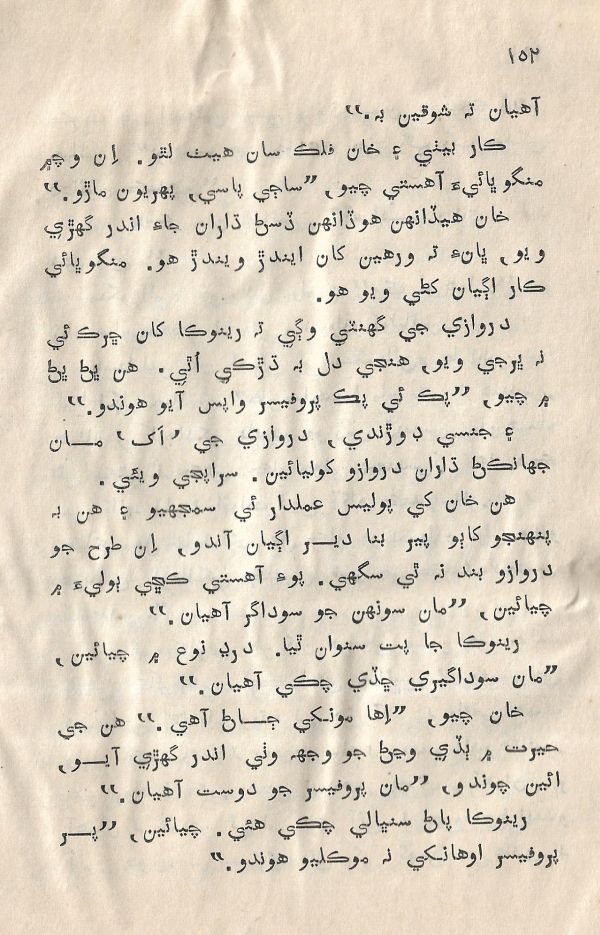 ۱۵۲
آهيان تہ شوقين بہ.“
ڪار بيٺي ۽ خان فلڪ سان هيٺ لٿو. اِن وچ۾
منگو ڀائيءَ آهستي چيو, ”ساڄي پاسي, پهريون ماڙو.“
خان هيڏانهن هوڏانهن ڏسڻ ڌاران جاءِ اندر گهڙي
ويو, ڀانءِ تہ ورهين کان ايندڙ ويندڙ هو. منگو ڀائي
ڪار اڳيان کڻي ويو هو.
دروازي جي گهنٽي وڳي تہ رينوڪا کان ڇرڪ ئي
نہ ڀرجي ويو, هنجي دل بہ ڌڙڪي اُٿي. هن ڀڻ ڀڻ
۾ چيو, ”پڪ ئي پڪ پروفيسر واپس آيو هوندو.“
۽ جنسي ڊوڙندي, دروازي جي ’اَک‘ مان
جهانڪڻ ڌاران دروازو کوليائين. سراپجي ويئي.
هن خان کي پوليس عملدار ئي سمجهيو ۽ هن بہ
پنهنجو کاٻو پير بنا دير اڳيان آندو, اِن طرح جو
دروازو بند نہ ٿي سگهي. پوءِ آهستي ڪڇي ٻوليءَ ۾
چيائين, ”مان سونهن جو سوداگر آهيان.“
رينوڪا جا ڀت سنوان ٿيا. درڍ نوع ۾ چيائين,
”مان سوداگيري ڇڏي چڪي آهيان.“
خان چيو, ”اِها مونکي ڄاڻ آهي.“ هن جي
حيرت ۾ ٻڏي وڃڻ جو وجهہ وٺي اندر گهڙي آيو,
ائين چوندو, ”مان پروفيسر جو دوست آهيان.“
رينوڪا پاڻ سنڀالي چڪي هئي. چيائين, ”پر
پروفيسر اوهانکي نہ موڪليو هوندو.“